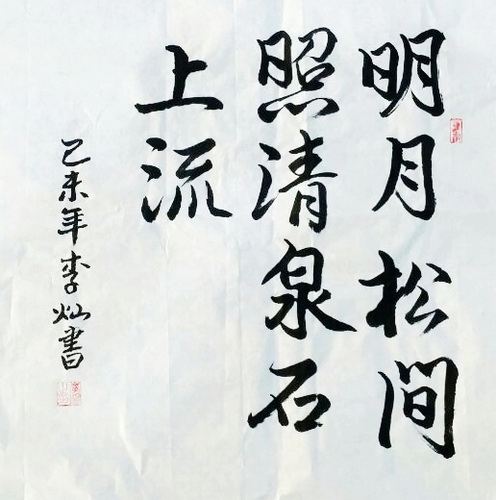 明月松间
照清泉石
上流
己未年李灿書